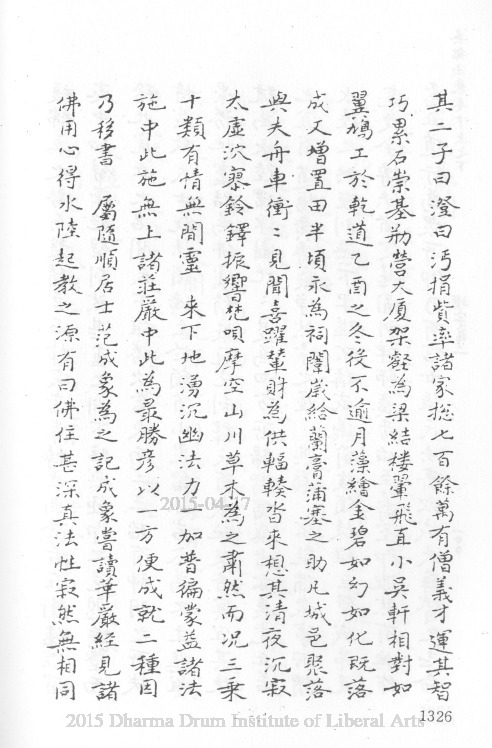 其二子曰澄曰沔捐貲率諸家揔七百餘萬有僧義才運其智
巧累石崇基刱營大厦架壑為梁結樓翬飛直小吳軒相對如
翼鳩工於乾道乙酉之冬後不逾月藻繪金碧如幻如化既落
成又增置田半頃永為祠闍歲給蘭膏蒲塞之助凡城邑聚落
與夫舟車衝衝見聞喜躍輦財為供輻輳沓來想其清夜沉寂
太虛泬寥鈴鐸振響梵唄摩空山川草木為之肅然而况三乗
十類有情無間靈 来下地湧沉幽法力 加普徧蒙益諸法
施中此施無上諸莊嚴中此為最勝彦以一方便成就二種因
乃移書 屬隨順居士范成象為之記成象嘗讀華嚴經見諸
佛用心得水陸起教之源有曰佛住甚深真法性寂然無相同
2015-04-17
2015 Dharma Drum Institute of Liberal Arts
1326